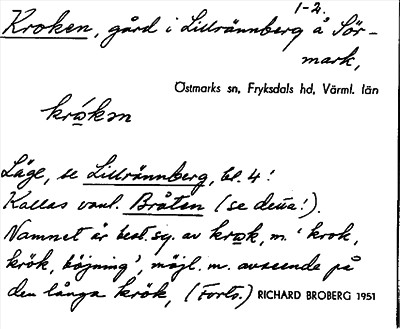 1-2.
Kroken, gård i Lillrännberg å Sör-
mark,
Östmarks sn, Fryksdals hd, Värml. län
Läge, se Lillrännberg, bl. 4!
Kallas vanl. Bråten (se detta!).
Namnet är best. sg. av krok, m. 'krok,
krök, böjning', möjl. m. avseende på
den långa krök, (Forts.) RICHARD BROBERG 1951